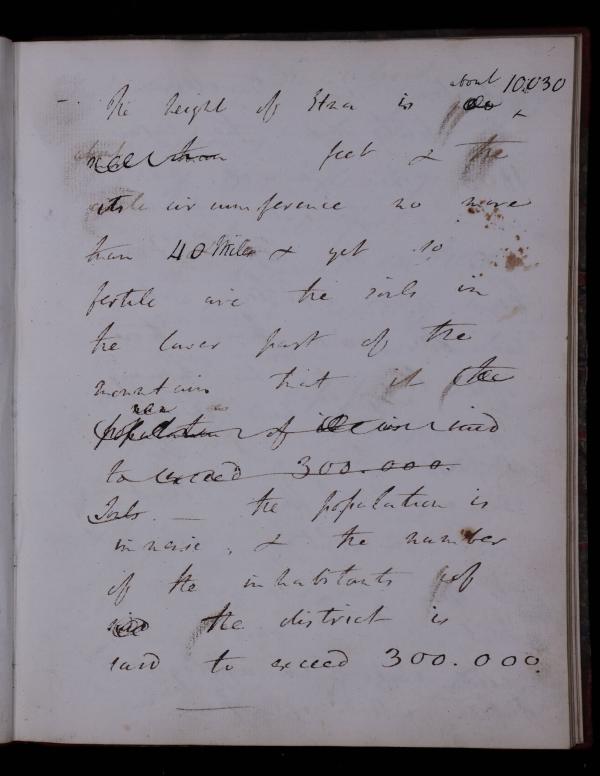 The height of Etna is about 10,030
than feet & the
circumference no more
than 40 Miles & yet so
fertile are the soils in
the lower part of the
mountain that it the
population of said
to exceed 300.000.
Souls. — the population is
immense, & the number
of the inhabitants of
the district is
said to exceed 300.000.